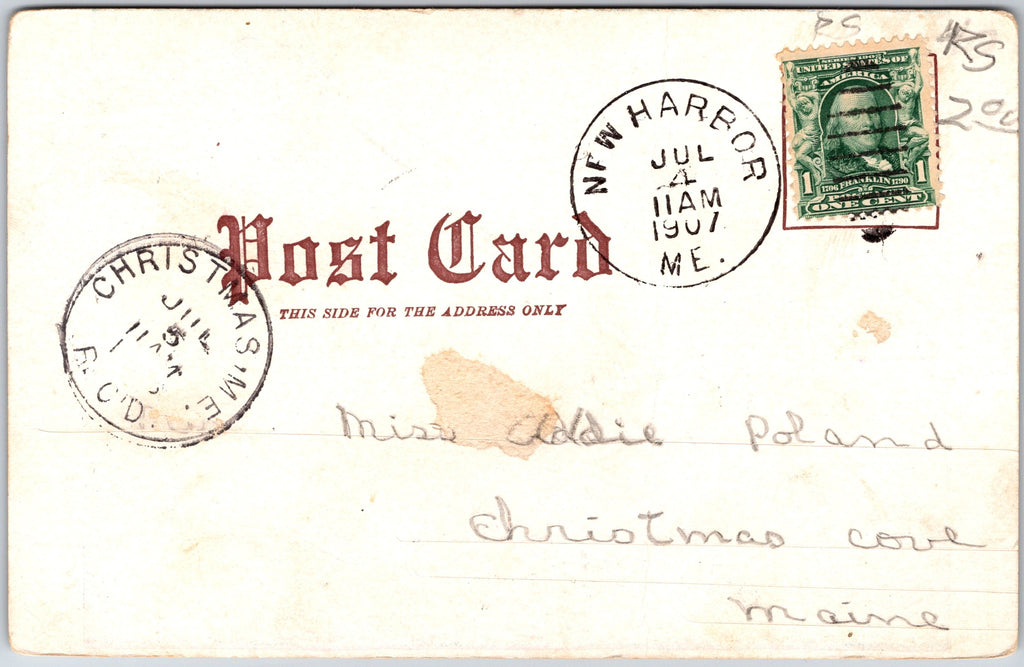 RS
RS
2.00
SERIES 1902
UNITED STATES OF
AMERICA
1706 FRANKLIN 1790
1 1
POSTAGE
ONE CENT
NEW HARBOR
JUL
4
11AM
1907
ME.
Post Card
THIS SIDE FOR THE ADDRESS ONLY
CHRISTMAS, ME.
5
REC'D.
Miss Addie Poland
Christmas cove
Maine